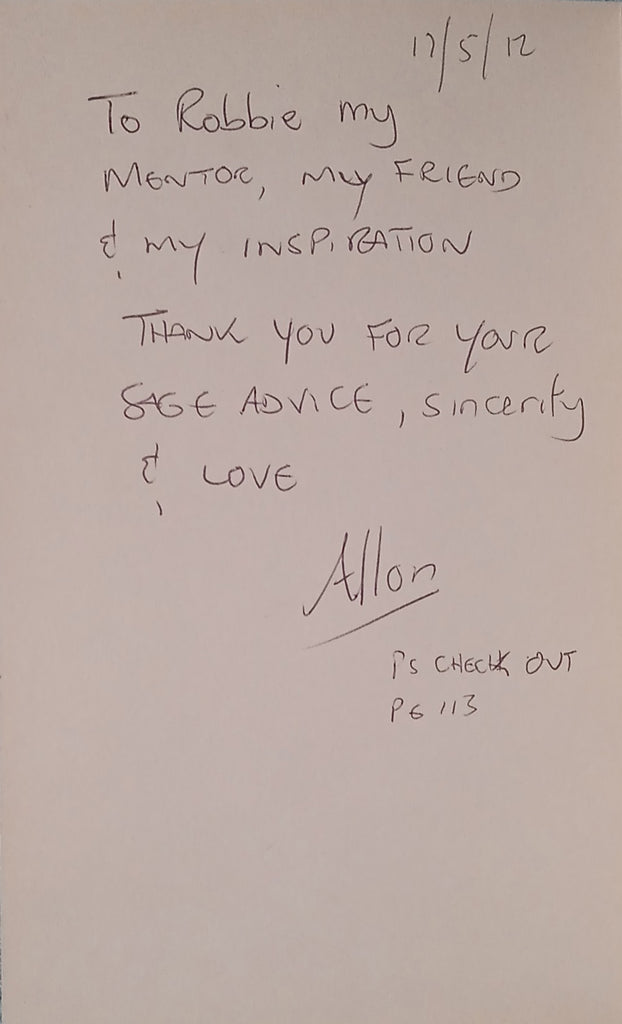 17/5/12
To Robbie my
MENTOR, my FRIEND
& my INSPIRATION
THANK YOU FOR YOUR
SAGE ADVICE, sincerity
& LOVE
Allon
PS CHECK OUT
PG 113